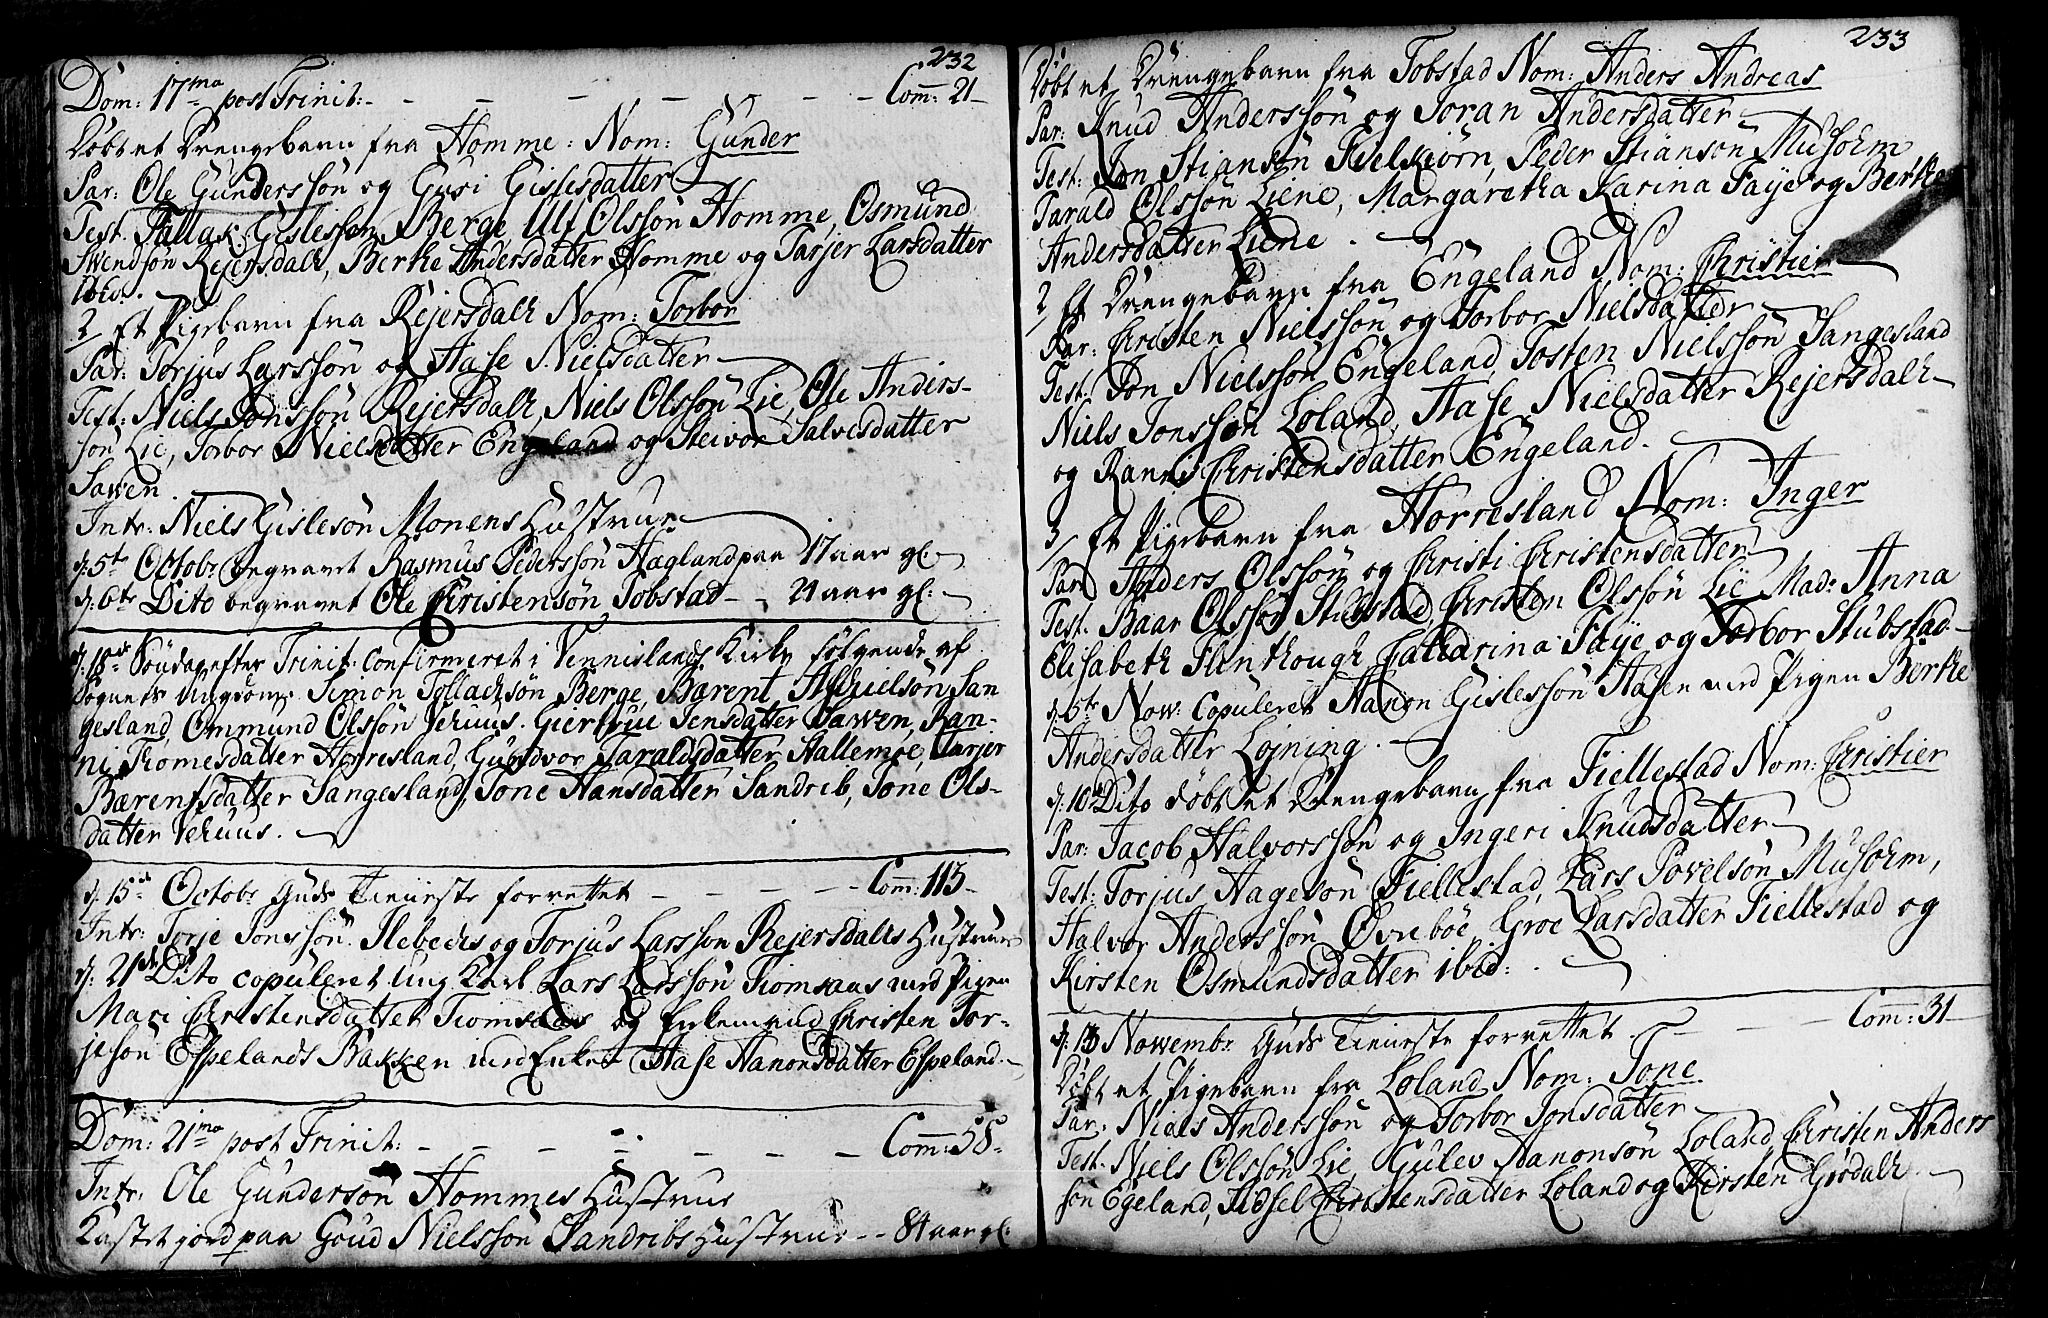 232
Dom: 17ma post Trinit: - - - - - - Com: 21
Döbt et Drengebarn fra Homme: Nom: Gunder
Par: Ole Gunderssön og Guri Gislesdatter
Test. Tallak Gislessen Berge, Ulf Olssön Homme, Osmund
Swendsön Rejersdalh, Berthe Andersdatter Homme og Tarjer Larsdatter
ibid.
2/ Et Pigebarn fra Rejersdalh Nom: Torbor
Par: Torjus Larssön og Aase Nielsdatter
Test: Niels Jonssön Rejersdalh, Niels Olssön Lie, Ole Anders-
sön Lie, Torbor Nielsdatter Engeland og Steivor Salvesdatter
Sawen.
Intr: Niels Gislesön Monens Hustrue
d. 5te Octobr begravet Rasmus Pederssön Hægland paa 17 aar gl:
d: 6te Dito begravet Ole Christensön Tobstad - - 21 aar gl:
d. 18de Söndag efter Trinit: Confirmeret i Vennislands Kirke fölgende af
Sognets Ungdom. Simon Tollachsön Berge, Bærent Aschielsön San
gesland, Ommund Olssön Vehuus. Giertrue Jensdatter Sawen, Ran-
ni Thomesdatter Horresland, Gundvor Taraldsdatter Hallemoe, Tarjer
Bærentsdatter Sangesland, Tone Hansdatter Sandrib, Tone Ols-
datter Vehuus.
d. 15de Octobr Guds Tieneste forrettet - - - - Com: 115
Intr: Torje Jonssön Ilebechs og Torjus Larsson Rejersdalhs Hustruer
d. 21de Dito copuleret ung Karl Lars Larssön Tiomsaas med Pigen
Mari Christensdatter Tiomsaas og Enkemand Christen Tor-
jesön Espelands Bakken med Enken Aase Aanonsdatter Espeland.
Dom: 21ma post Trinit: - - - - - - Com: 58
Intr: Ole Gundersön Hommes Hustrue
Kastet jord paa Goud Nielssön Sandribs Hustrue - - 84 aar gl:
233
Döbt et Drengebarn fra Tobstad Nom: Anders Andreas
Par: Knud Anderssön og Joran Andersdatter
Test: Jon Stiansön Fielkiörn, Peder Stiansön Musholm
Tarald Olssön Liene, Margaretha Karina Faye og Berthe
Andersdatter Liene.
2/ Et Drengebarn fra Engeland Nom: Christier
Par: Christen Nielssön og Torbor Nielsdatter
Test: Jon Nielssön Engeland, Tosten Nielssön Sangesland
Niels Jonssön Loland, Aase Nielsdatter Rejersdalh
og Ranni Christensdatter Engeland.
3/ Et Pigebarn fra Horresland Nom: Inger
Par: Anders Olssön og Christi Christensdatter
Test. Baar Olssön Stubstad, Christen Olssön Lie, Mad: Anna
Elisabeth Flenthough Catharina Faye og Torbor Stubstad.
d. 5te Now: Copuleret Aanon Gislessön Aasen med Pigen Berthe
Andersdatter Lojning.
d. 10 Dito döbt et Drengebarn fra Fiellestad Nom: Christier
Par: Jacob Halvorssön og Ingeri Knudsdatter
Test: Torjus Aagesön Fiellestad, Lars Povelsön Musholm,
Halvor Anderssön Övneböe, Groe Larsdatter Fiellestad og
Kirsten Osmundsdatter ibid:
d. 13 Nowembr Guds Tieneste forrettet. - - - Com: 31
Döbt et Pigebarn fra Loland Nom: Tone
Par: Niels Anderssön og Torbor Jonsdatter
Test. Niels Olssön Lie, Gulev Aanonsön Loland, Christen Anders
sön Egeland, Sidsel Christensdatter Loland og Kirsten Giordalh